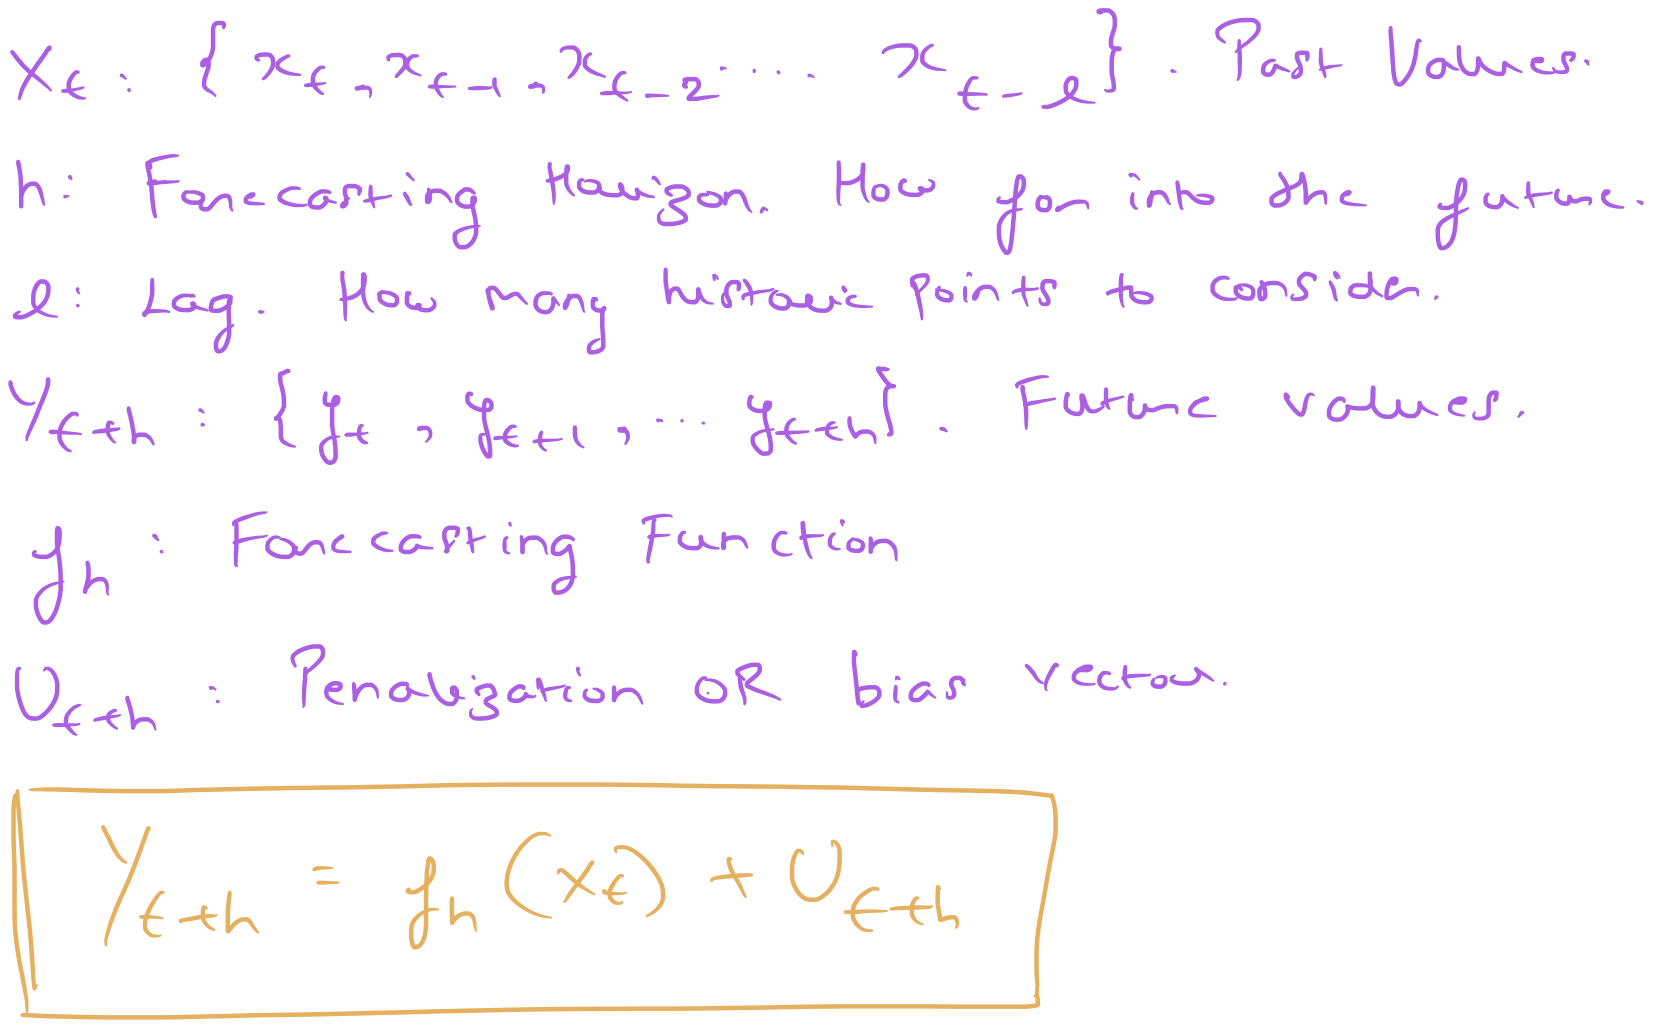 X_t : { x_t, x_{t-1}, x_{t-2} .... x_{t-l} } . Past Values.
h: Forecasting Horizon. How far into the future.
l: Lag. How many historic points to consider.
Y_{t+h} : { y_t, y_{t+1}, ... y_{t+h} } . Future values.
f_h : Forecasting Function
U_{t+h} : Penalization OR bias vector.
Y_{t+h} = f_h (X_t) + U_{t+h}